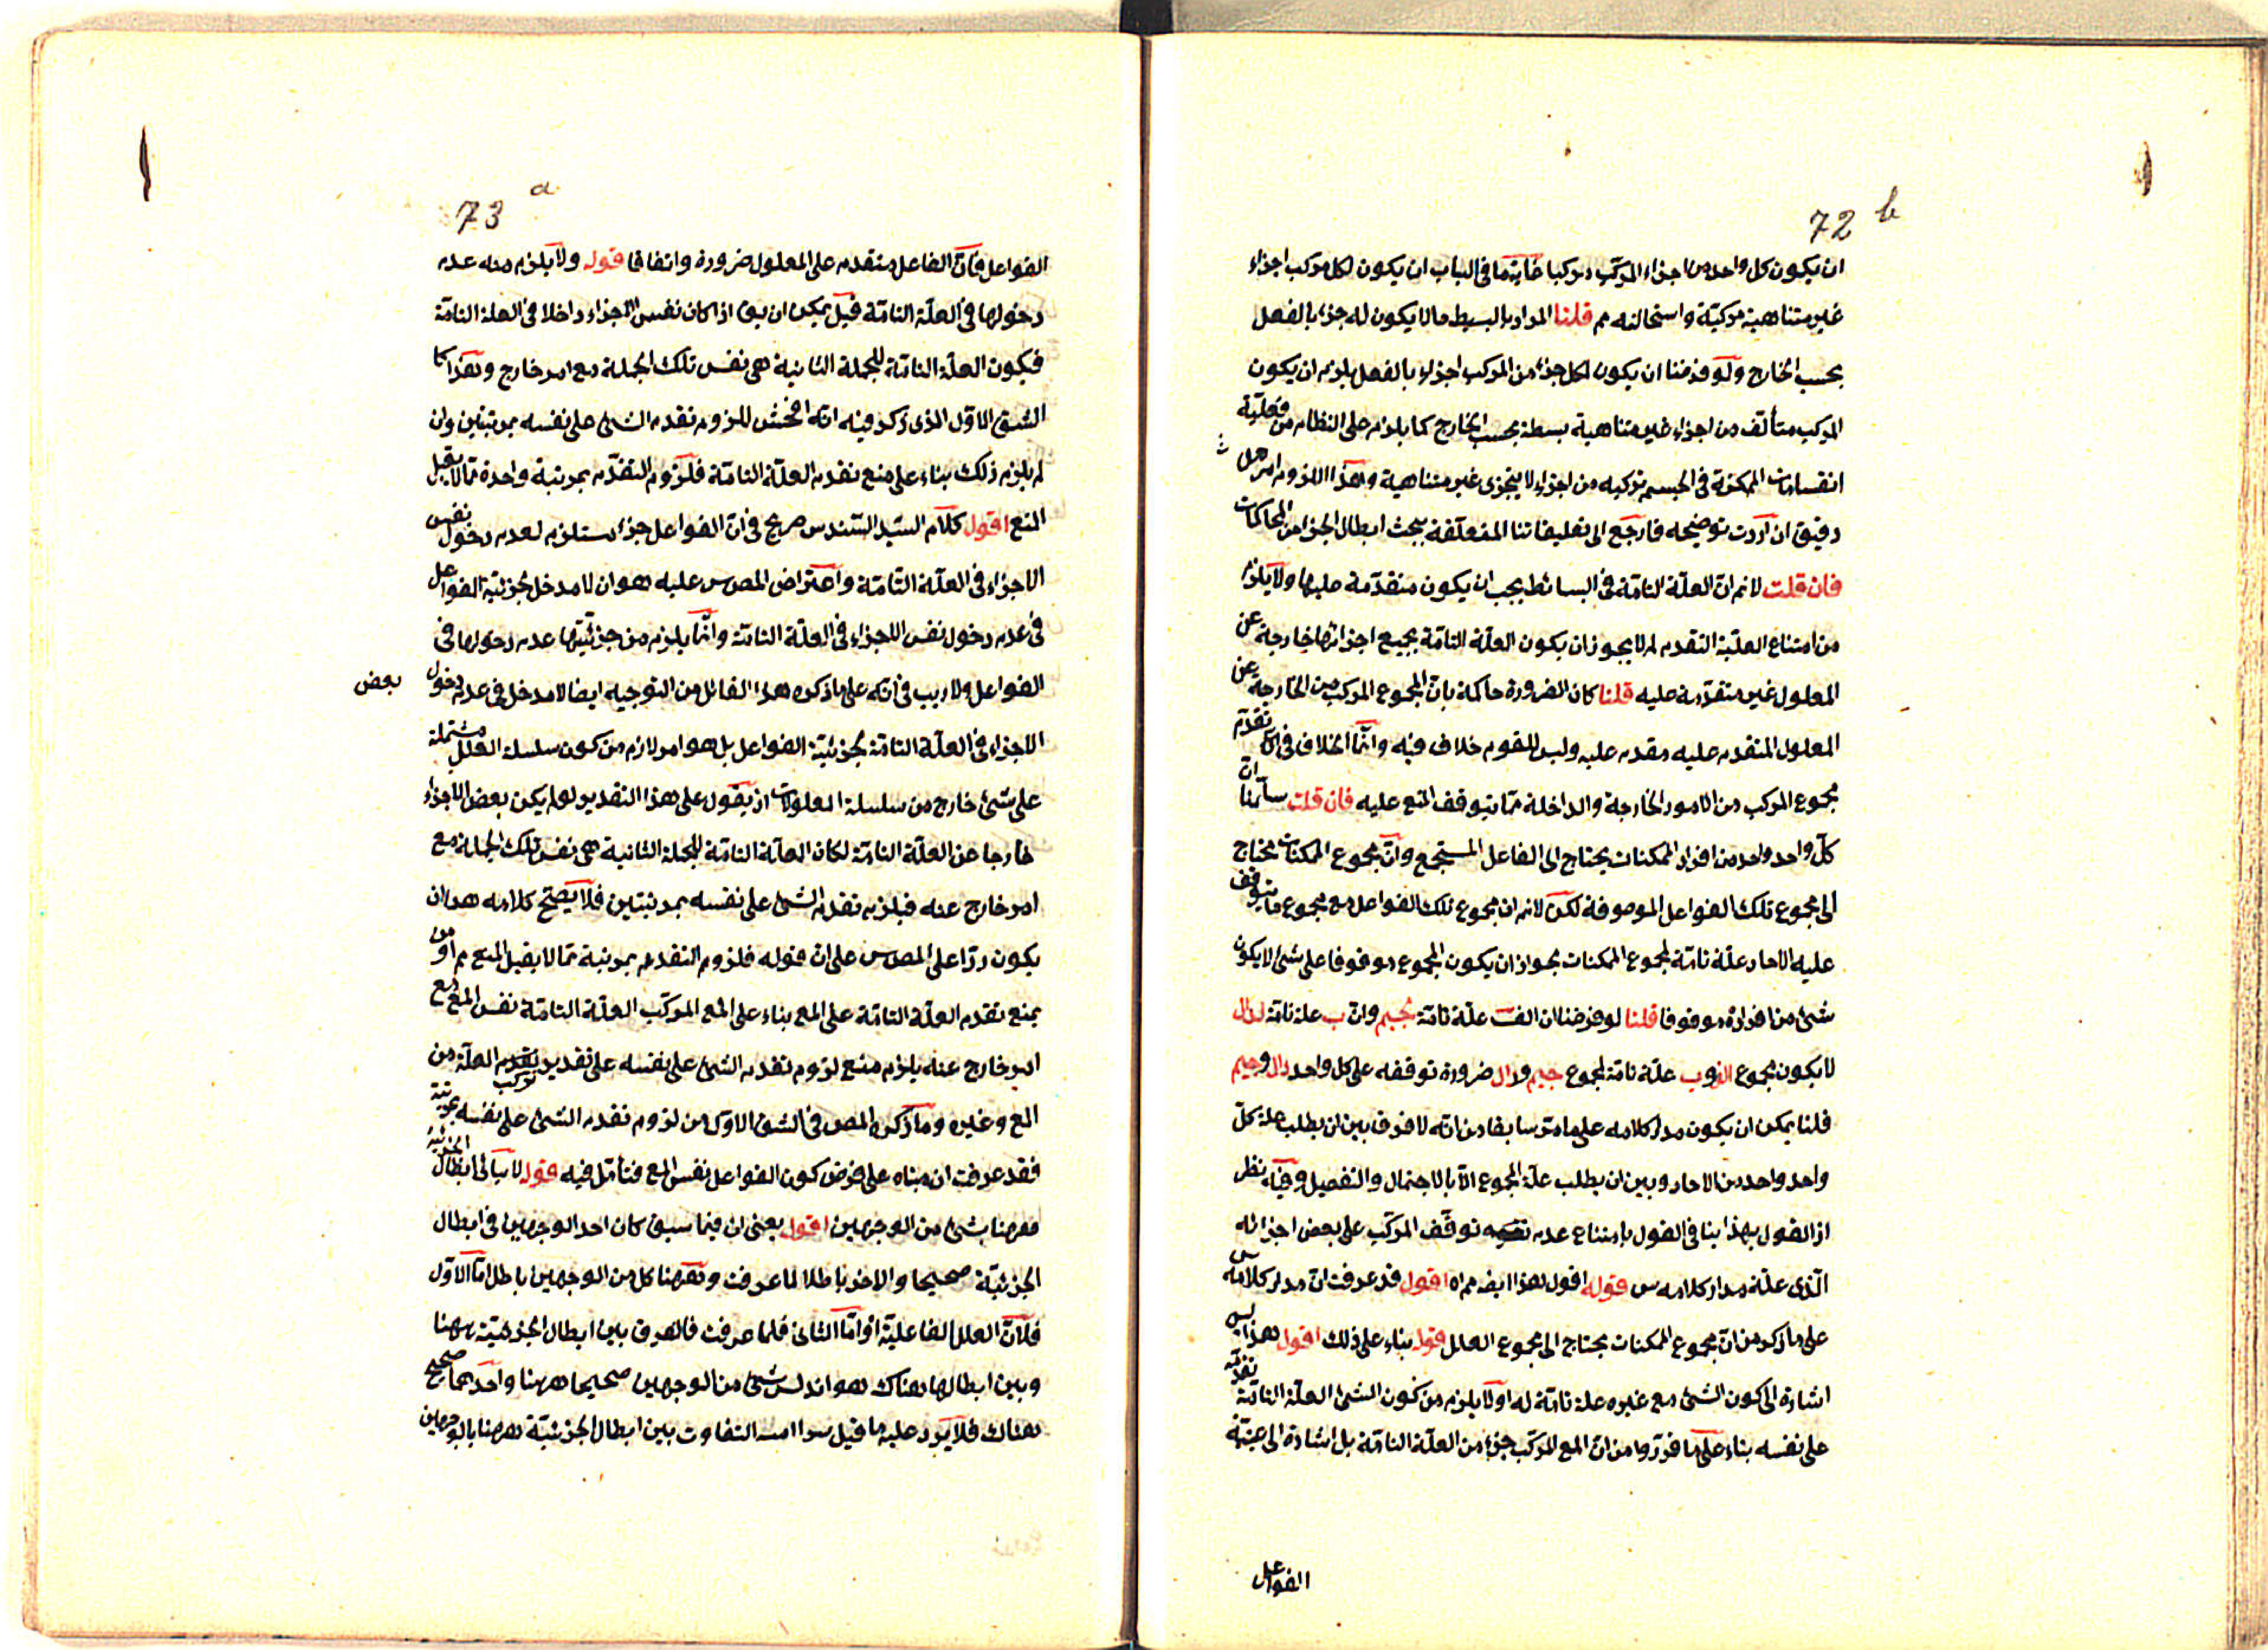 72 b
ان يكون كل واحد من اجزاء المركب مركبا غاية ما فى الباب ان يكون لكل مركب اجزاء
غير متناهية مركبة واستحالته مم قلنا المراد بالبسيط ما لا يكون له جزء بالفعل
بحسب الخارج ولو فرضنا ان يكون لكل جزء من المركب اجزاء بالفعل يلزم ان يكون
المركب متألف من اجزاء غير متناهية بسطة بحسب الخارج كما يلزم على النظام من فعلية
انقسامات الممكنة فى الجسم تركبه من اجزاء لا يتجزى غير متناهية وهذا اللزوم امر
دقيق ان اردت توضيحه فارجع الى تعليقاتنا المتعلقة ببحث ابطال الجزء من المحاكمات
فان قلت لانم ان العلة التامة فى البسائط يجب ان يكون متقدمة عليها ولا يلزم
من امتناع العلية التقدم لم لا يجوز ان يكون العلة التامة بجميع اجزائها خارجة عن
المعلول غير متقدمة عليه قلنا كان الضرورة حاكمة بان المجموع المركب من الخارجة عن
المعلول المتقدم عليه مقدم عليه وليس للقوم خلاف فيه وانما الخلاف فى تقدم
مجموع المركب من الامور الخارجة والداخلة مما يتوقف المع عليه فان قلت سلمنا ان
كل واحد واحد من افراد الممكنات يحتاج الى الفاعل المستجمع وان مجموع الممكنات يحتاج
الى مجموع تلك الفواعل الموصوفة لكن لانم ان مجموع تلك الفواعل مع مجموع ما يتوقف
عليه الاحاد علة تامة لمجموع الممكنات بجواز ان يكون المجموع موقوفا على شئ لا يكون
شئ من افراده موقوفا قلنا لو فرضنا ان الف علة تامة لجيم وان ب علة تامة لدال
لا يكون مجموع الف و ب علة تامة لمجموع جيم ودال ضرورة توقفه على كل واحد دال وجيم
قلنا يمكن ان يكون مدار كلامه على ما مر سابقا من انه لا فرق بين ان يطلب علة كل
واحد واحد من الاحاد وبين ان يطلب علة المجموع الا بالاجمال والتفصيل وفيه نظر
اذ القول بهذا ينافى القول بامتناع عدم توقف المركب على بعض اجزائه
الذى علة مدار كلامه س قوله اقول هذا ايضا مم اه اقول قد عرفت ان مدار كلامه
على ما ذكر من ان مجموع الممكنات يحتاج الى مجموع العلل قوله بناء على ذلك اقول هذا ليس
اشارة الى كون الشئ مع غيره علة تامة له اولا يلزم من كون الشئ العلة التامة تقدمه
على نفسه بناء على ما قرروا من ان المع المركب جزء من العلة التامة بل اشارة الى عينية
الفواعل
73 a
الفواعل فان الفاعل متقدم على المعلول ضرورة واتفاقا قوله ولا يلزم منه عدم
دخولها فى العلة التامة قيل يمكن ان يق اذا كان نفس الاجزاء داخلا فى العلة التامة
فيكون العلة التامة للجملة الثانية هى نفس تلك الجملة مع امر خارج وهذا كا
الشق الاول الذى ذكر فيه انه افحش للزوم تقدم الشئ على نفسه بمرتبتين وان
لم يلزم ذلك بناء على منع تقدم العلة التامة فلزوم التقدم بمرتبة واحدة مما لا يقبل
المنع اقول كلام السيد السند س صريح فى ان الفواعل جزء مستلزم لعدم دخول نفس
الاجزاء فى العلة التامة واعتراض المص س عليه هو ان لا مدخل لجزئية الفواعل
فى عدم دخول نفس الاجزاء فى العلة التامة وانما يلزم من جزئيتها عدم دخولها فى
الفواعل ولا ريب فى انه على ما ذكره هذا القائل من التوجيه ايضا لا مدخل فى عدم دخول بعض
الاجزاء فى العلة التامة لجزئية الفواعل بل هو امر لازم من كون سلسلة العلل مشتملة
على شئ خارج من سلسلة المعلولات اذ يقول على هذا التقدير لو لم يكن بعض الاجزاء
خارجا عن العلة التامة لكان العلة التامة للجملة الثانية هى نفس تلك الجملة مع
امر خارج عنه فيلزم تقدم الشئ على نفسه بمرتبتين فلا يصح كلامه هذا ان
يكون ردا على المص س على ان قوله فلزوم التقدم بمرتبة مما لا يقبل المنع مم او من
يمنع تقدم العلة التامة على المع بناء على المع المركب العلة التامة نفس المع مع
امر خارج عنه يلزم منع لزوم تقدم الشئ على نفسه على تقدير تركب العلة من
المع وغيره وما ذكره المص فى الشق الاول من لزوم تقدم الشئ على نفسه بمرتبة
فقد عرفت ان مبناه على فرض كون الفواعل نفس المع فتأمل فيه قوله لا يتأتى ابطال الجزئية
ههنا بشئ من الوجهين اقول يعنى ان فيما سبق كان احد الوجهين فى ابطال
الجزئية صحيحا والاخر باطلا لما عرفت وههنا كل من الوجهين باطل اما الاول
فلان العلل الفاعلية اه واما الثانى فلما عرفت فالفرق بين ابطال الجزئية ههنا
وبين ابطالها هناك هو ان ليس شئ من الوجهين صحيحا ههنا واحدهما صحيح
هناك فلا يرد عليه ما قيل التفاوت بين ابطال الجزئية ههنا بالوجهين